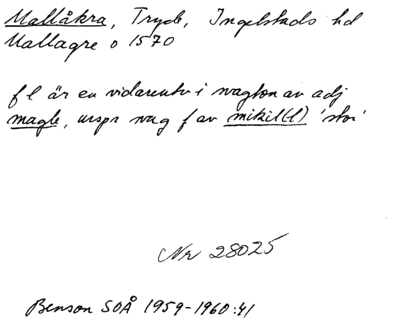 Mallåkra, Tryde, Ingelstads hd
Mallagre o 1570
fl är en vidareutv i nagton av adj
magle, urspr svag f av mikil(l) 'stor'
Nr 28025
Benson SOÅ 1959-1960:41